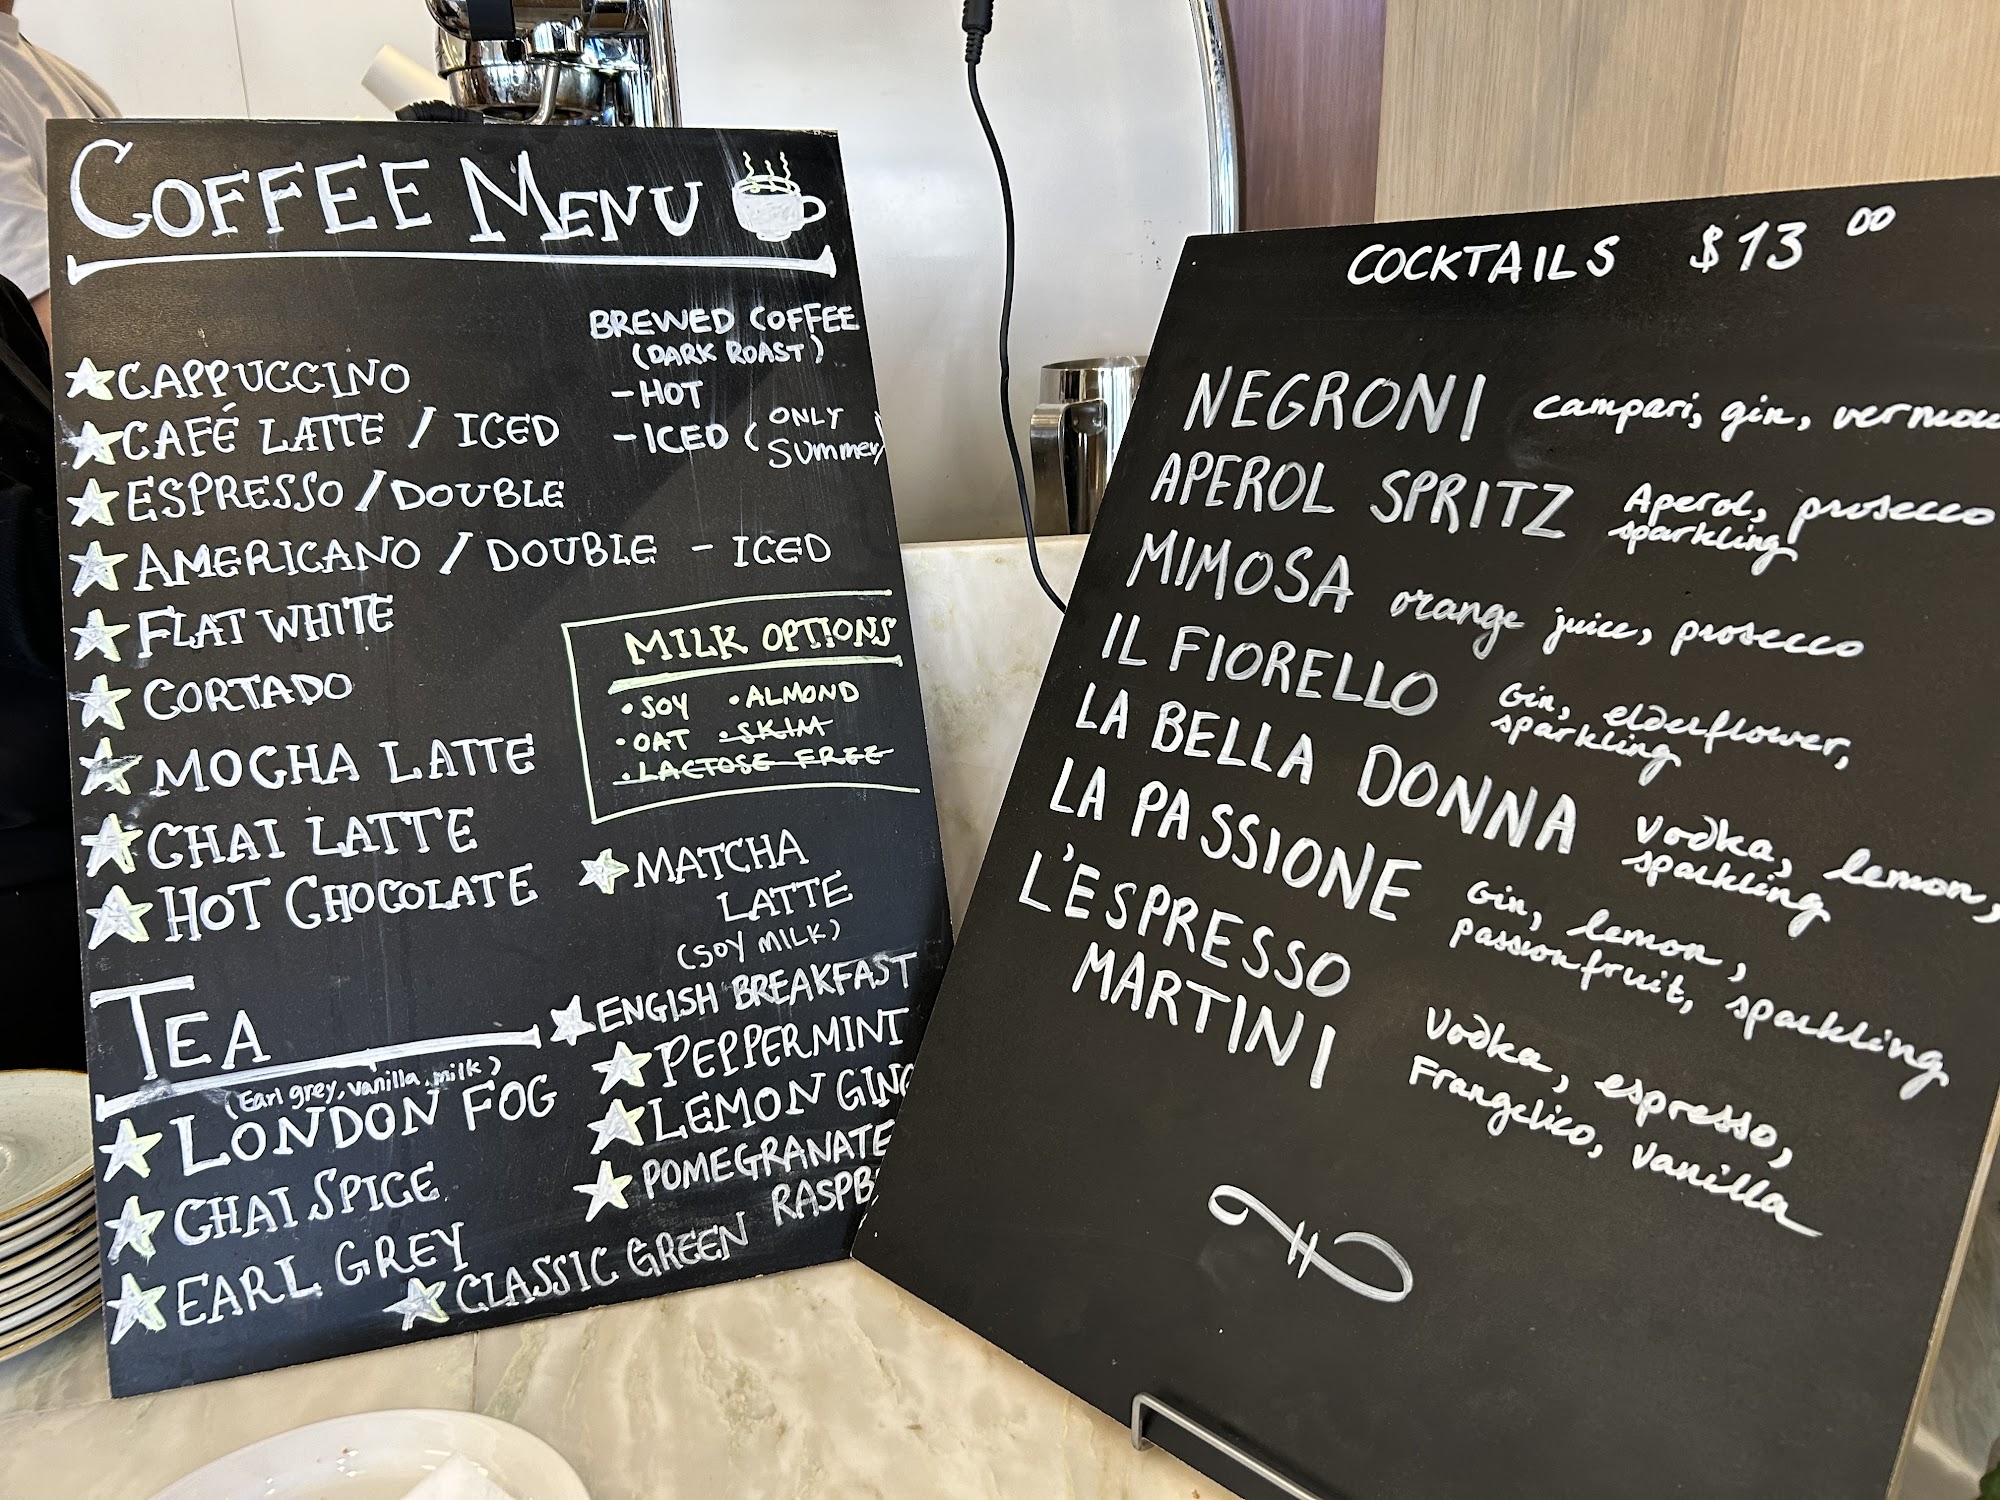 COFFEE MENU
BREWED COFFEE
(DARK ROAST)
- HOT
- ICED (ONLY
SUMMER)
CAPPUCCINO
CAFÉ LATTE / ICED
ESPRESSO / DOUBLE
AMERICANO / DOUBLE - ICED
FLAT WHITE
CORTADO
MOCHA LATTE
CHAI LATTE
HOT CHOCOLATE
MILK OPTIONS
• SOY • ALMOND
• OAT • SKIM
• LACTOSE FREE
MATCHA
LATTE
(SOY MILK)
TEA
(Earl grey, vanilla, milk)
LONDON FOG
CHAI SPICE
EARL GREY
ENGISH BREAKFAST
PEPPERMINT
LEMON GING
POMEGRANATE
RASPB
CLASSIC GREEN
COCKTAILS $13 00
NEGRONI Campari, gin, vermou
APEROL SPRITZ Aperol, prosecco
sparkling
MIMOSA orange juice, prosecco
IL FIORELLO Gin, elderflower,
sparkling
LA BELLA DONNA Vodka, lemon,
sparkling
LA PASSIONE Gin, lemon,
passionfruit, sparkling
L'ESPRESSO
MARTINI Vodka, espresso,
Frangelico, vanilla